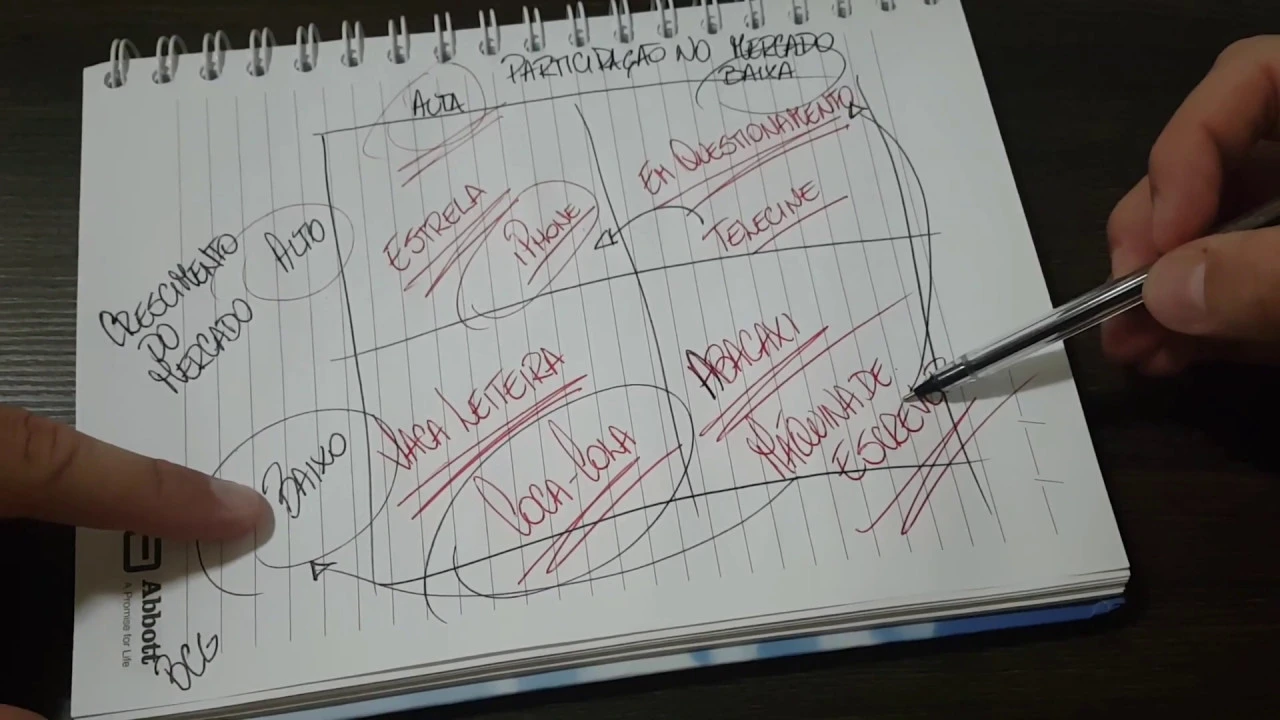 PARTICIPAÇÃO NO MERCADO
ALTA
BAIXA
CRESCIMENTO
DO
MERCADO
ALTO
BAIXO
ESTRELA
iPHONE
EM QUESTIONAMENTO
TENECINE
VACA LEITEIRA
COCA-COLA
ABACAXI
MÁQUINA DE
ESCREVER
Abbott
A Promise for Life
BCG